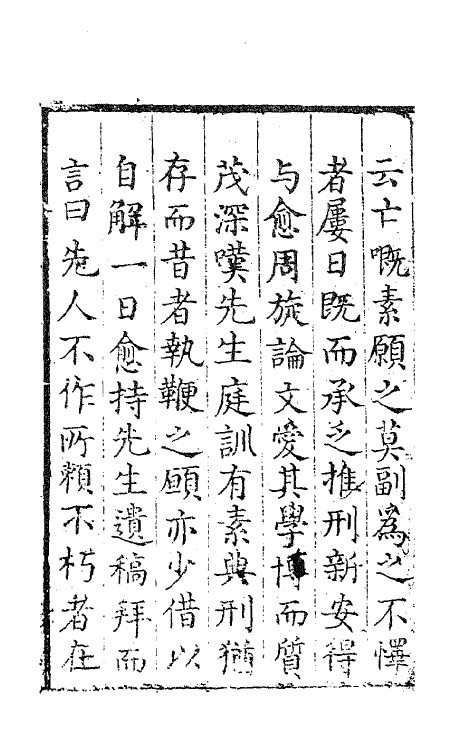 云亡嘅素願之莫副為之不懌
者屢日既而承乏推刑新安得
与愈周旋論文愛其學博而質
茂深嘆先生庭訓有素典刑猶
存而昔者執鞭之願亦少借以
自解一日愈持先生遺稿拜而
言曰先人不作所賴不朽者在